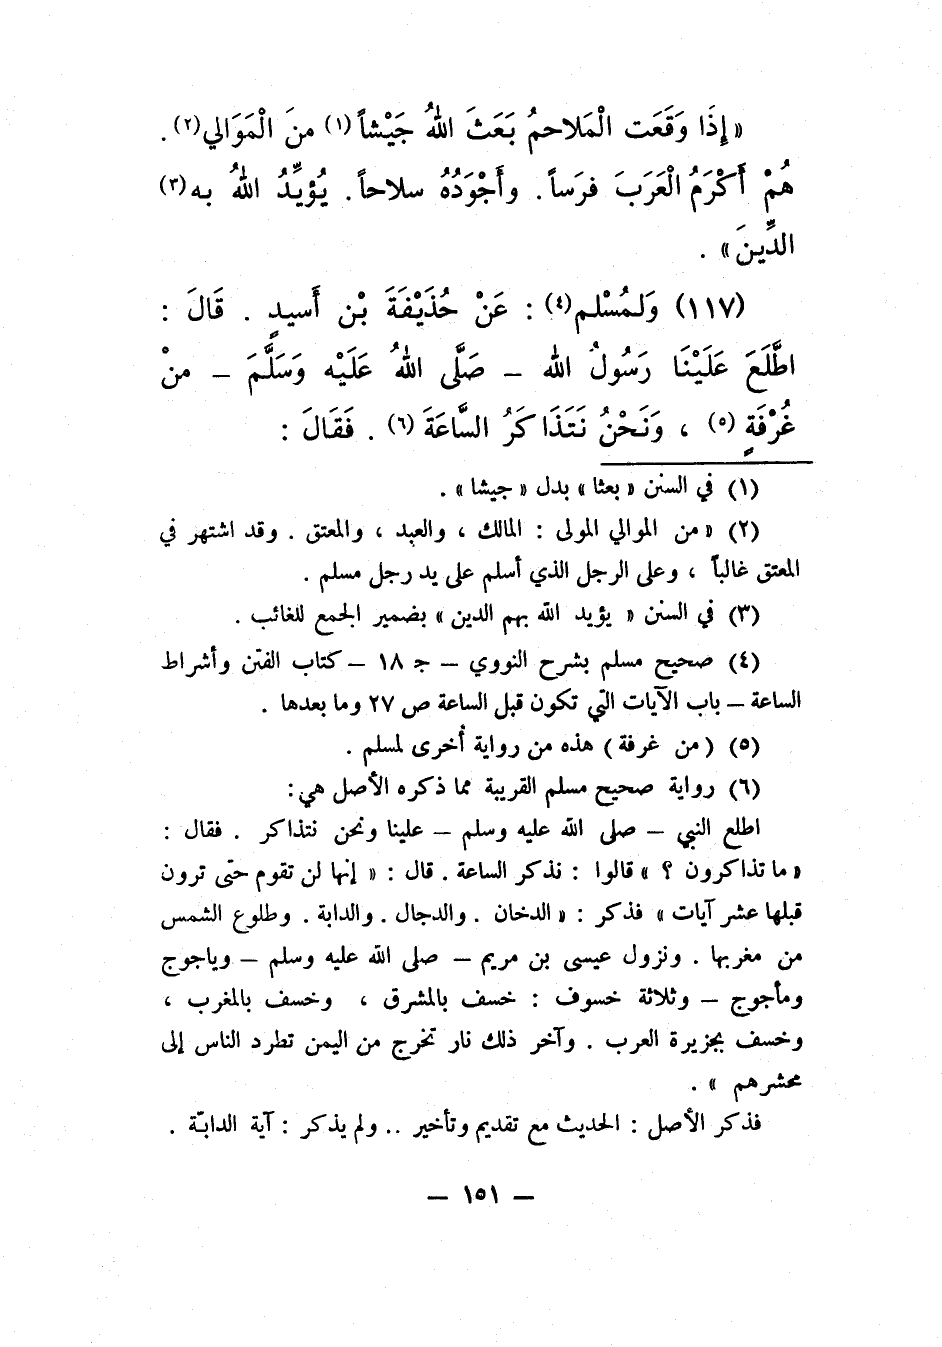 « إِذَا وَقَعَت الْمَلاحمُ بَعَثَ اللهُ جَيْشاً (١) منَ الْمَوَالي (٢) .
هُمْ أَكْرَمُ الْعَرَبَ فرَساً . وأَجْوَدُهُ سلاحاً . يُؤيِّدُ اللهُ به (٣)
الدِّينَ » .
(١١٧) وَلمُسْلم (٤) : عَنْ حُذَيْفَةَ بْن أَسيدٍ . قَالَ :
اطَّلَعَ عَلَيْنَا رَسُولُ الله – صَلَّى اللهُ عَلَيْه وَسَلَّمَ – منْ
غُرْفَةٍ (٥) ، وَنَحْنُ نَتَذَاكَرُ السَّاعَةَ (٦) . فَقَالَ :
(١) في السنن « بعثا » بدل « جيشا » .
(٢) « من الموالي المولى : المالك ، والعبد ، والمعتق . وقد اشتهر في
المعتق غالباً ، وعلى الرجل الذي أسلم على يد رجل مسلم .
(٣) في السنن « يؤيد الله بهم الدين » بضمير الجمع للغائب .
(٤) صحيح مسلم بشرح النووي – جـ ١٨ – كتاب الفتن وأشراط
الساعة – باب الآيات التي تكون قبل الساعة ص ٢٧ وما بعدها .
(٥) ( من غرفة ) هذه من رواية أُخرى لمسلم .
(٦) رواية صحيح مسلم القريبة مما ذكره الأصل هي :
اطلع النبي – صلى الله عليه وسلم – علينا ونحن نتذاكر . فقال :
« ما تذاكرون ؟ » قالوا : نذكر الساعة . قال : « إنها لن تقوم حتى ترون
قبلها عشر آيات » فذكر : « الدخان . والدجال . والدابة . وطلوع الشمس
من مغربها . ونزول عيسى بن مريم – صلى الله عليه وسلم – وياجوج
ومأجوج – وثلاثة خسوف : خسف بالمشرق ، وخسف بالمغرب ،
وخسف بجزيرة العرب . وآخر ذلك نار تخرج من اليمن تطرد الناس إلى
محشرهم » .
فذكر الأصل : الحديث مع تقديم وتأخير .. ولم يذكر : آية الدابّة .
– ١٥١ –